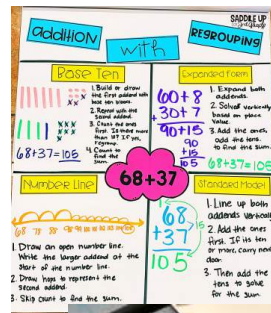 SADDLE UP
addition
with
REGROUPING
Base Ten
1. Build or draw
the first addend with
base ten blocks.
2. Repeat with the
second addend.
3. Count the ones
first. Is there more
than 10? If yes,
regroup.
4. Count to
find the
sum.
68+37=105
Expanded Form
60+8
+30+7
90+15
90
+15
105
1. Expand both
addends.
2. Solve vertically
based on place
value.
3. Add the ones,
add the tens
to find the sum.
68+37=105
68+37
Number Line
68 78 88 98
1. Draw an open number line.
Write the larger addend at the
start of the number line.
2. Draw hops to represent the
second addend.
3. Skip count to find the sum.
Standard Model
1
68
+37
105
1. Line up both
addends vertically
2. Add the ones
first. If its ten
or more, carry
3. Then add the
tens to solve
for the sum.